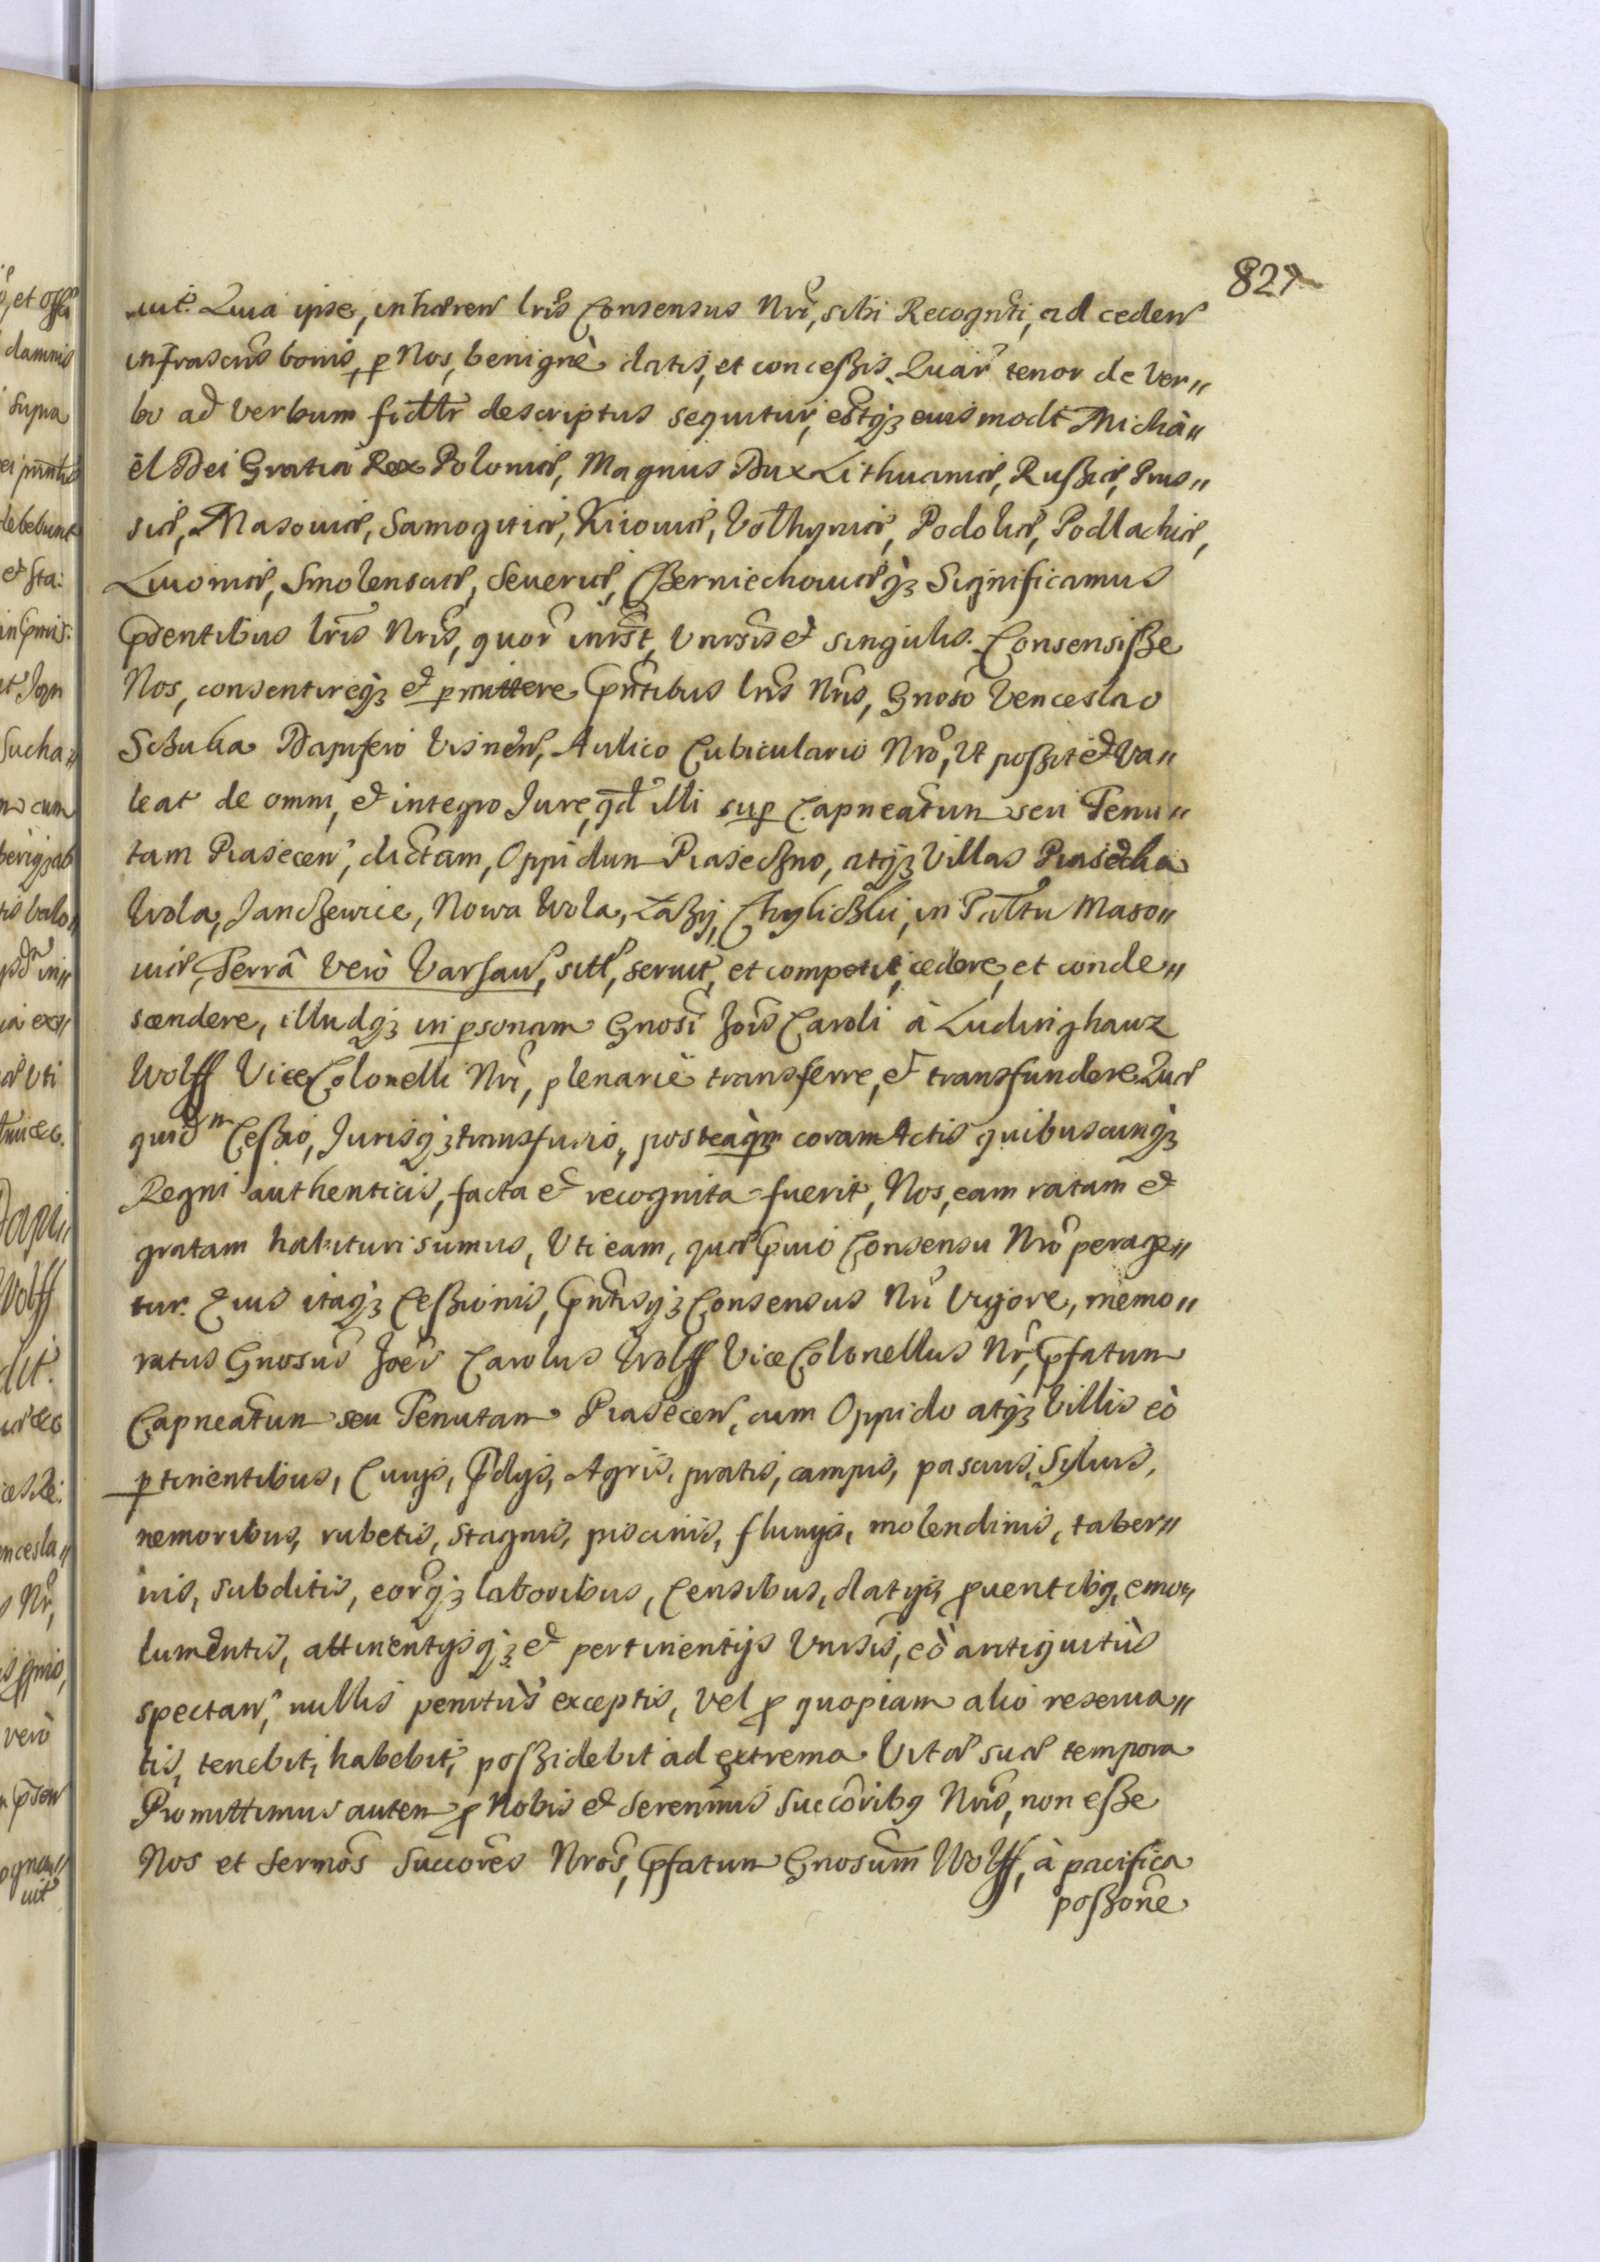 827
uit. Quia ipse, inhæren lris Consensus Nri, sibi Recognti, ad ceden
infrascris bonis, p Nos, benignè datis, et conceßis. Quar tenor de Ver„
bo ad verbum fidtr descriptus sequitur, estq3 eiusmodi Michà„
ël Dei Gratia Rex Poloniæ, Magnus Dux Lithuaniæ, Rußiæ, Prus„
siæ, Masouiæ, Samogitiæ, Kiiouiæ, Volhyniæ, Podoliæ, Podlachiæ,
Liuoniæ, Smolensciæ, Seueriæ, Czerniechouiæq3 Significamus
Pdentibus lris Nris, quor inrst, Vnirsis et singulis. Consensiße
Nos, consentireq3 et pmittere Pntibus lris Nris, Gnoso Venceslao
Szuba Dapifero Visnen, Aulico Cubiculario Nro, Vt poßit et Va„
leat de omni, et integro Jure, qd illi sup Capneatum seu Tenu„
tam Piasecen, dictam, Oppidum Piaseczno, atq3 Villas Piasecka
Wola, Janczewice, Nowa Wola, Łazÿ, Chyliczki, in Paltu Maso„
uiæ, Terrâ verò Varsauˢ, sitˢ, seruit, et competit, cedere, et conde„
scendere, illudq3 in psonam Gnosi Jois Caroli à Ludinghauz
Wolff ViceColonelli Nri, plenariè transferre, et transfundere. Quæ
quidm Ceßio, Jurisq3 transfusio, posteàqm coram Actis quibuscunq3
Regni authenticis, facta et recognita fuerit, Nos, eam ratam et
gratam habituri sumus, Vti eam, quæ Puio Consensu Nro perage„
tur. Eius itaq3 Ceßionis, Pntisq3 Consensus Nri Vigore, memo„
ratus Gnosus Joes Carolus Wolff ViceColonellus Nr, Pfatum
Capneatum seu Tenutam Piasecen, cum Oppido atq3 Villis eò
ptinentibus, Curijs, Pdijs, Agris, pratis, campis, pascuis, Syluis,
nemoribus, rubetis, stagnis, piscinis, fluuijs, molendinis, taber„
nis, subditis, eorq3 laboribus, Censibus, datijs, puentibq, emo„
lumentis, attinentijsq3 et pertinentijs Vnirsis, eò antiquitùs
spectan, nullis penitùs exceptis, Vel p quopiam alio reserua„
tis, tenebit, habebit, poßidebit ad extrema Vitæ suæ tempora
Promittimus autem p Nobis et Serenmis Succoribq Nris, non eße
Nos et Sermos Succores Nros, Pfatum Gnosum Wolff, à pacifica
poßone